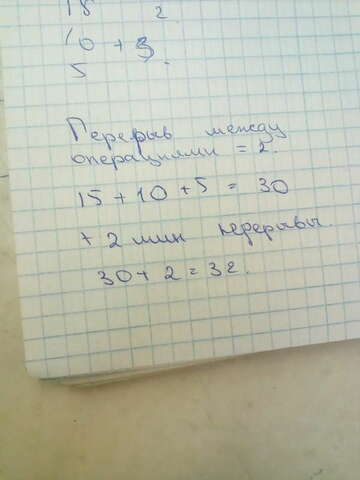 15 2
10 + 3
5
Перерыв между
операциями = 2.
15 + 10 + 5 = 30
+ 2 мин перерывы.
30 + 2 = 32.